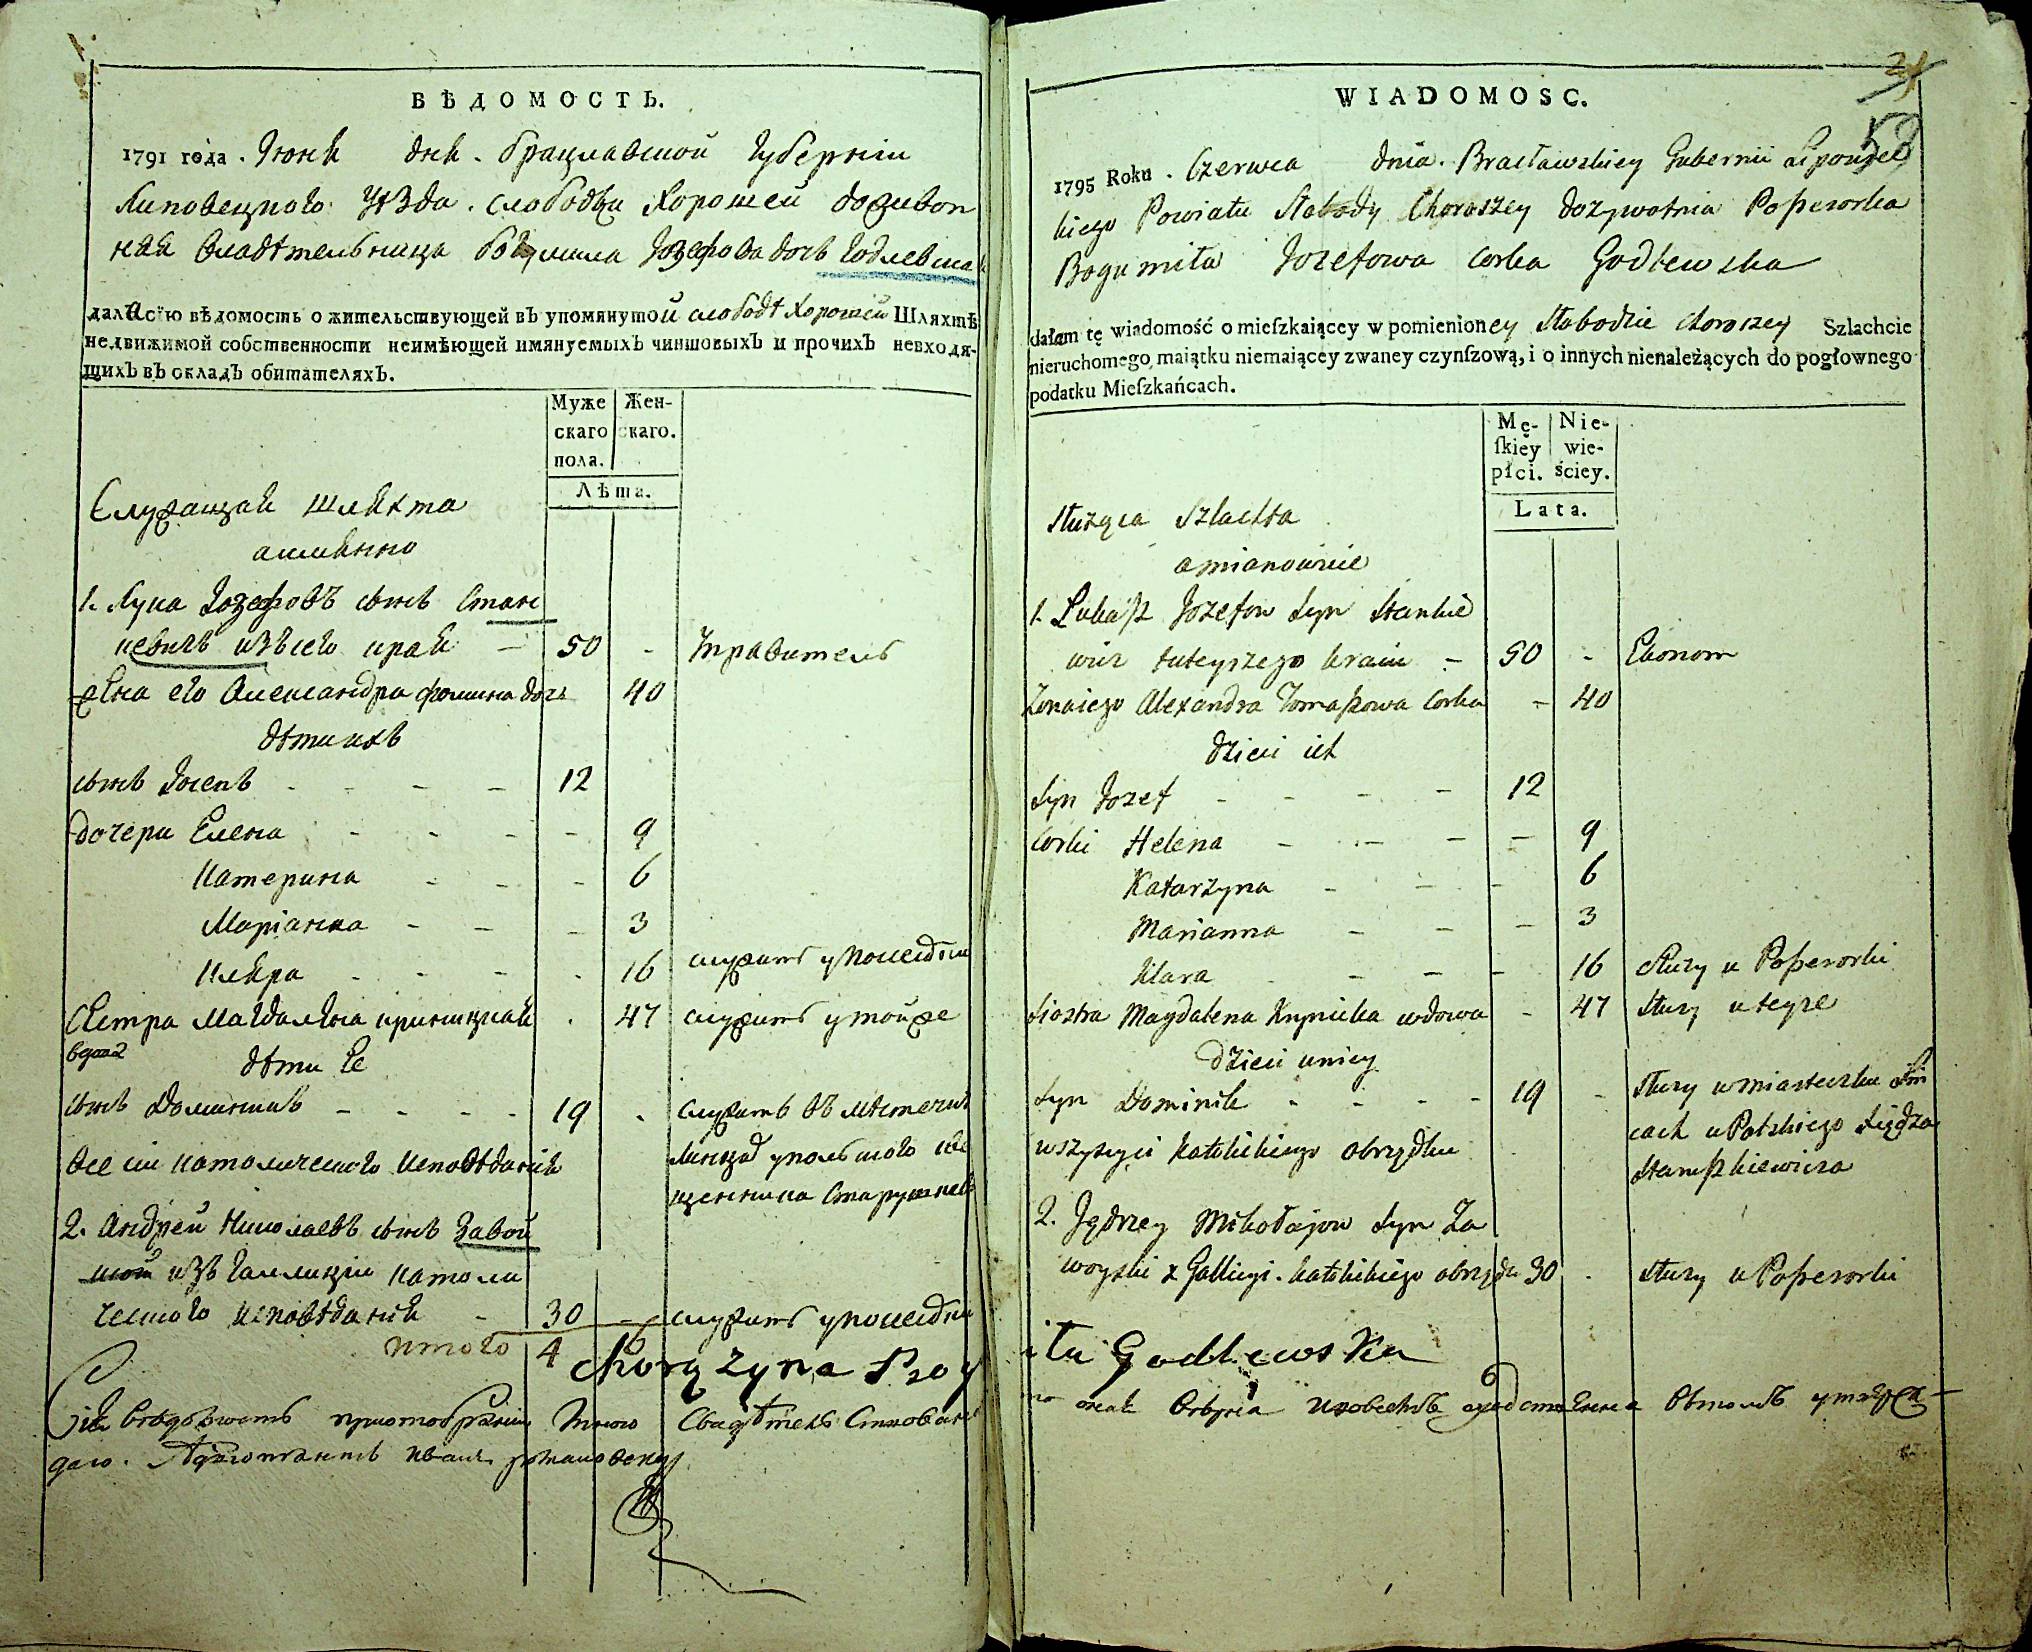 ВѢДОМОСТЬ.
1791 года. Июня дня. Брацлавской Губернии
Липовецкого Уѣзда. слободы Хорошей доживот
ная владѣтельница Богумила Iозефова дочь Годлевска
далАсiю вѣдомость о жительствующей въ упомянутой слободѣ Хорошей Шляхтѣ
недвижимой собственности неимѣющей имянуемыхъ чиншовыхъ и прочихъ невходя-
щихъ въ окладъ обитателяхъ.
Муже Жен-
скаго скаго.
пола.
Лѣта.
Служащая шляхта
аимянно
1. Лука Iозефовъ сынъ Стан
кевичъ изъ сего края — 50 - Управитель
жена его Александра фомина дочь 40
дѣти ихъ
сынъ Iосепъ - - - - 12
дочери Елена - - - - - 9
Катерина - - - - 6
Марiанна - - - 3
Кляра - - - - - 16 служитъ у посесорки
Сестра Магдалена крыницкая . 47 служитъ у тойже
вдова
дѣти Ее
сынъ Доминикъ - - - - 19 . служитъ въ мѣстечкѣ
все сiи католического исповѣданiя Линцах у польского свя
щенника
2. Андрей Николаевъ сынъ Завой
ской изъ Галлицiи католи
ческого исповѣданiя - 30 - служитъ у посесорки
итого 4 16
chorązyna Bog
Сiя вѣдомость
WIADOMOSC.
58
1795 Roku. Czerwca dnia. Bracławskiey Gubernii Lipowiec
kiego Powiatu Słabody Choroszey dozywotnia Posseszorka
Bogumiła Jozefowa corka Godlewska
dałam tę wiadomość o mieſzkaiącey w pomienioney Słabodzie Choroszey Szlachcie
nieruchomego maiątku niemaiącey zwaney czynſzową, i o innych nienależących do pogłownego
podatku Mieſzkańcach.
Mę- Nie-
ſkiey wie-
płci. ściey.
Lata.
Służąca Szlachta
amianowicie
1. Łukasz Jozefow Syn Stankie
wicz tuteyszego kraiu - 50 - Ekonom
Zona iego Alexandra Tomaszowa Corka - 40
Dzieci ich
Syn Jozef - - - - 12
Corki Helena - - - - 9
Katarzyna - - - 6
Marianna - - - 3
Klara - - - 16 służy u Possesorki
Siostra Magdalena Krynicka wdowa - 47 służy u teyze
Dzieci u niey
Syn Dominik - - - - 19 - służy w miasteczku Lin
cach u Polskiego Xiędza
wszyscy katolickiego obrządku
2. Jędrzey Mikołajow Syn Za
woyski z Gallicyi. katolickiego obrządku 30 . służy u Possesorki
iła Godlewska